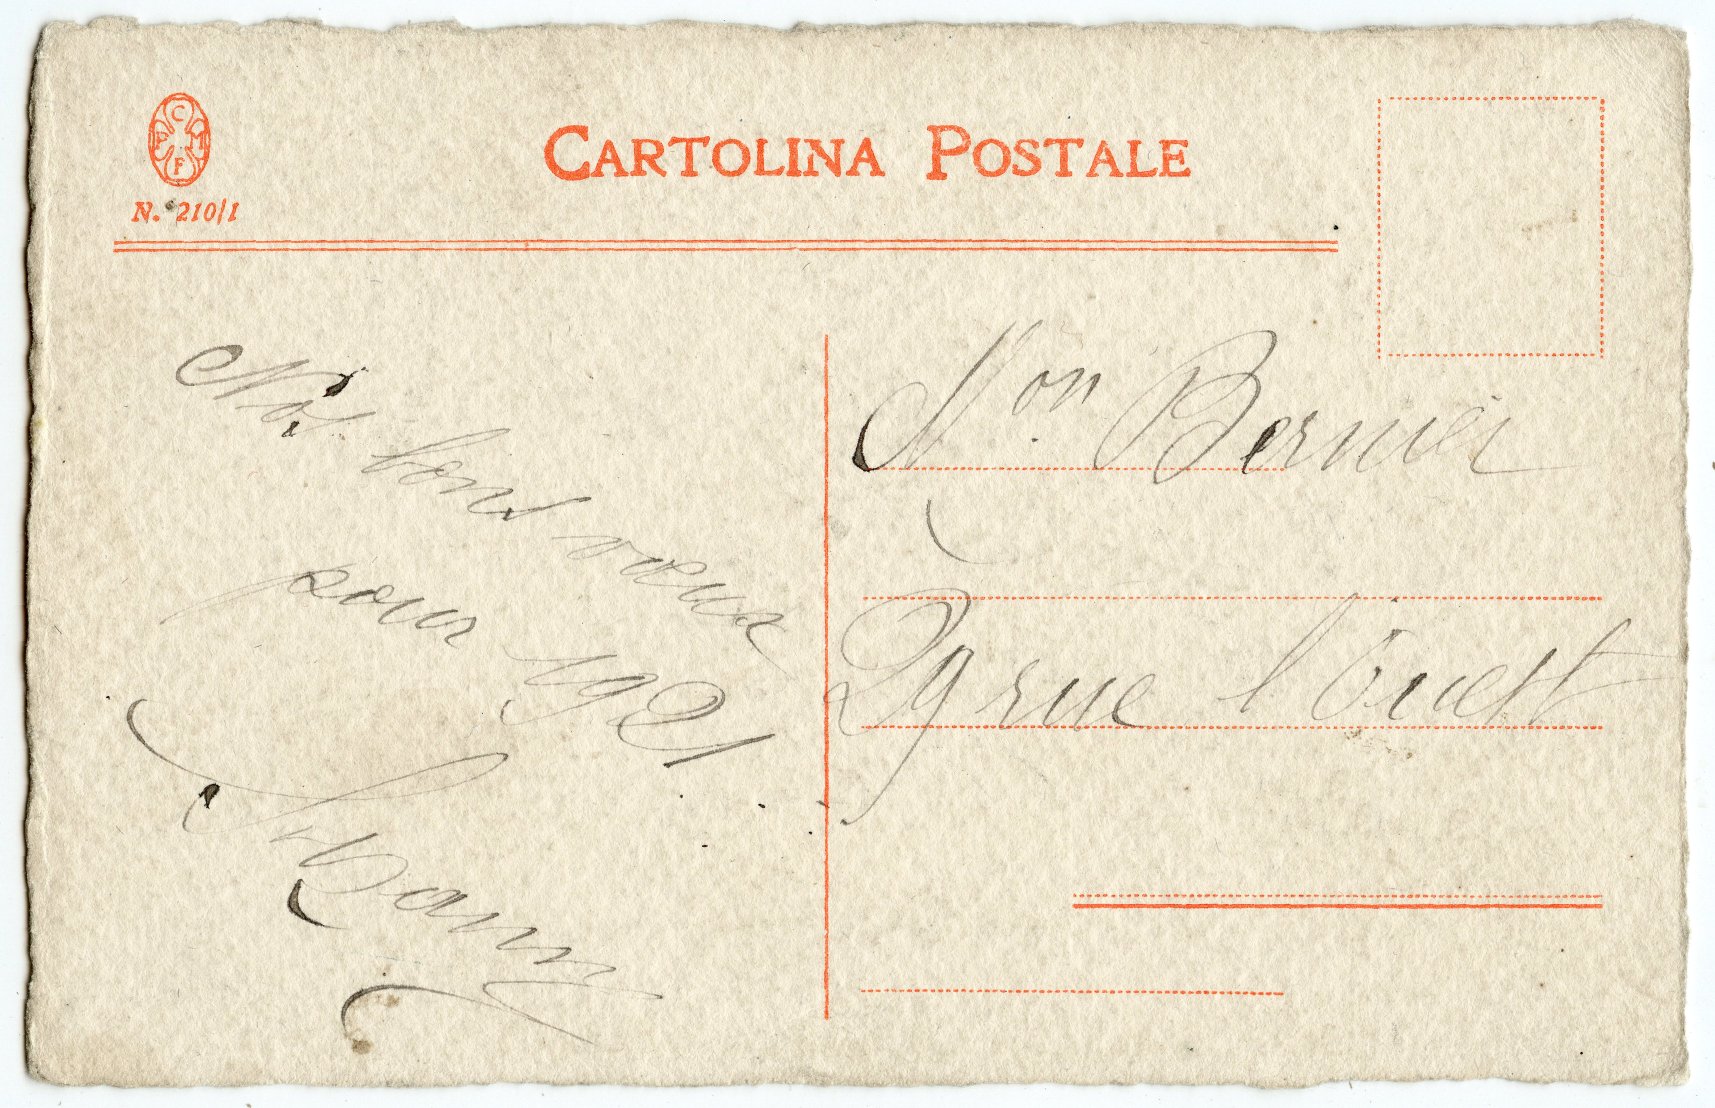 C P I F
N. 210/1
CARTOLINA POSTALE
Nos bons vœux
pour 1921
Mon Bernier
29 rue l'Ouest